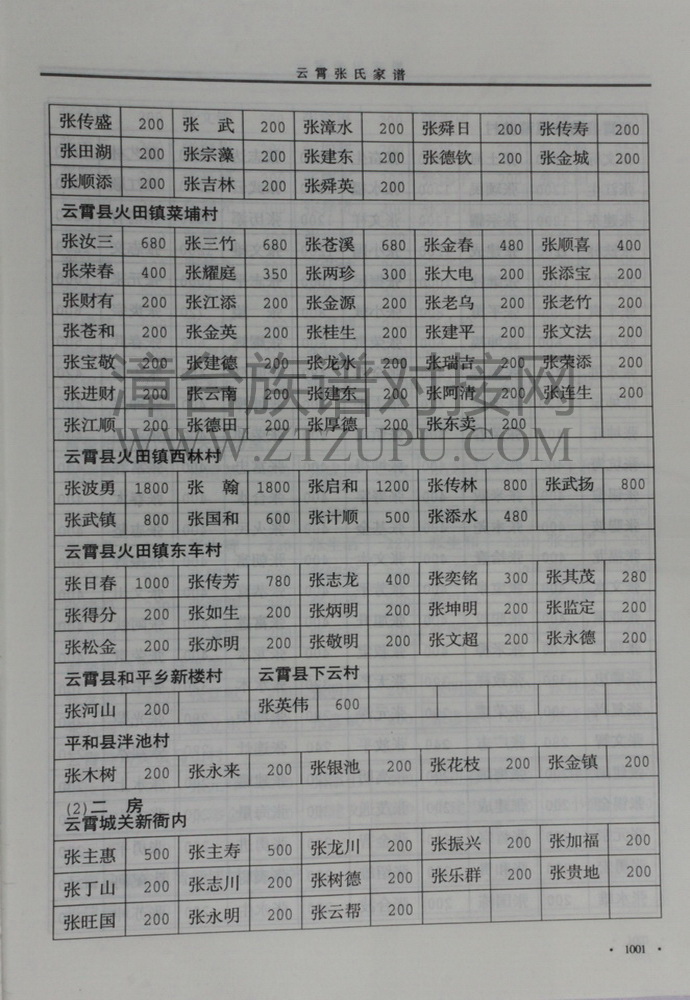 云霄张氏家谱
张传盛 200 张 武 200 张漳水 200 张舜日 200 张传寿 200
张田湖 200 张宗藻 200 张建东 200 张德钦 200 张金城 200
张顺添 200 张吉林 200 张舜英 200
云霄县火田镇菜埔村
张汝三 680 张三竹 680 张苍溪 680 张金春 480 张顺喜 400
张荣春 400 张耀庭 350 张两珍 300 张大电 200 张添宝 200
张财有 200 张江添 200 张金源 200 张老乌 200 张老竹 200
张苍和 200 张金英 200 张桂生 200 张建平 200 张文法 200
张宝敬 200 张建德 200 张龙水 200 张瑞吉 200 张荣添 200
张进财 200 张云南 200 张建东 200 张阿清 200 张连生 200
张江顺 200 张德田 200 张厚德 200 张东卖 200
漳台族谱对接网
WWW.ZTZUPU.COM
云霄县火田镇西林村
张波勇 1800 张 翰 1800 张启和 1200 张传林 800 张武扬 800
张武镇 800 张国和 600 张计顺 500 张添水 480
云霄县火田镇东车村
张日春 1000 张传芳 780 张志龙 400 张奕铭 300 张其茂 280
张得分 200 张如生 200 张炳明 200 张坤明 200 张监定 200
张松金 200 张亦明 200 张敬明 200 张文超 200 张永德 200
云霄县和平乡新楼村 云霄县下云村
张河山 200 张英伟 600
平和县泮池村
张木树 200 张永来 200 张银池 200 张花枝 200 张金镇 200
(2)二 房
云霄城关新衙内
张主惠 500 张主寿 500 张龙川 200 张振兴 200 张加福 200
张丁山 200 张志川 200 张树德 200 张乐群 200 张贵地 200
张旺国 200 张永明 200 张云帮 200
· 1001 ·